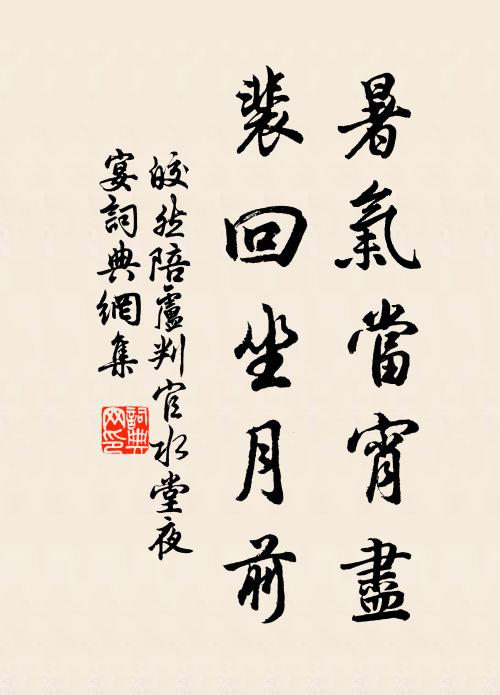 暑氣當宵盡
裴回坐月前
皎然陪盧判官水堂夜
宴詞典網集
詞典
网印